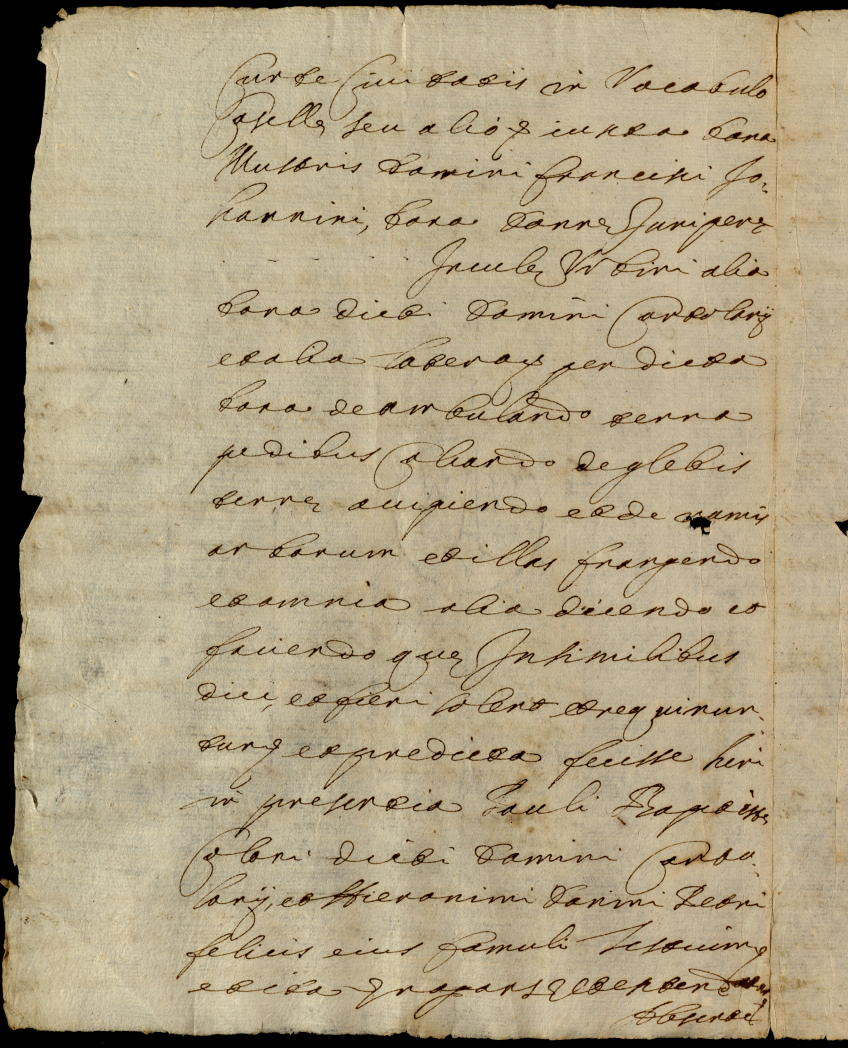 Curte Civitatis in Vocabulo
Caselle seu alio et iuxta bona
Mulieris Domini Francisci Jo-
hannini, bona Domne Juniper
Urbini alia
bona dicti Domini Cartolarij
et alia latera et per dicta
bona deambulando terra
pedibus calcando de glebis
terre accipiendo et de ramis
arborum et illas frangendo
et omnia alia dicendo et
faciendo que In similibus
dici, et fieri solent et requirun-
tur et predicta fecisse heri
in presentia Pauli Baptiste
Coloni dicti Domini Carto-
larij, et Hieronimi Petri
felicis eius famuli testium
et ita